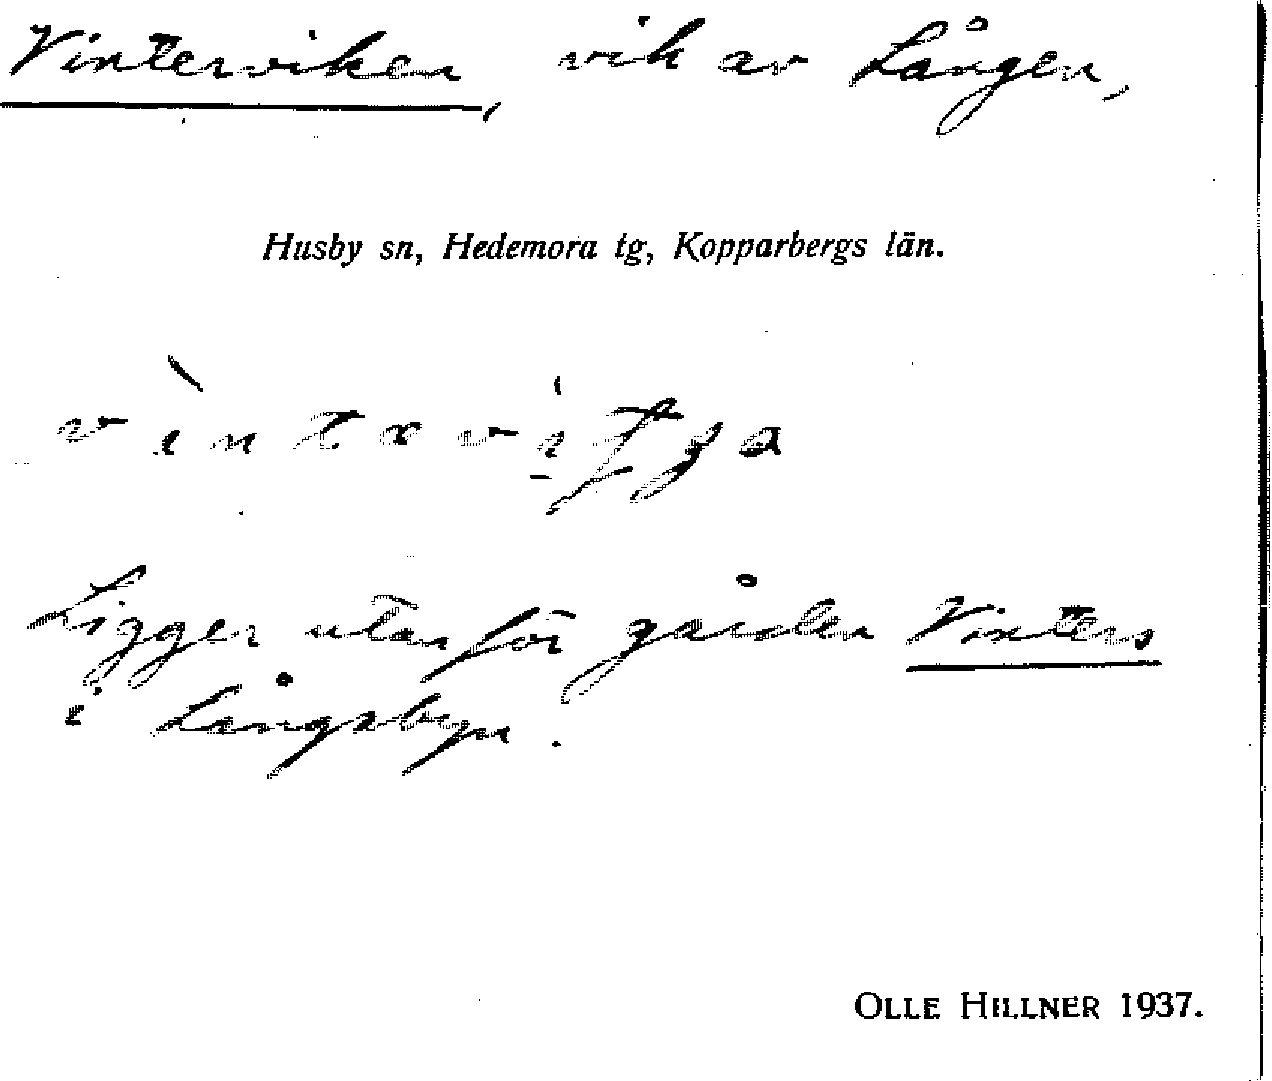 Vinterviken, vik av Lången,
Husby sn, Hedemora tg, Kopparbergs län.
Ligger utanför gården Vinters
i Långsbyn.
OLLE HILLNER 1937.